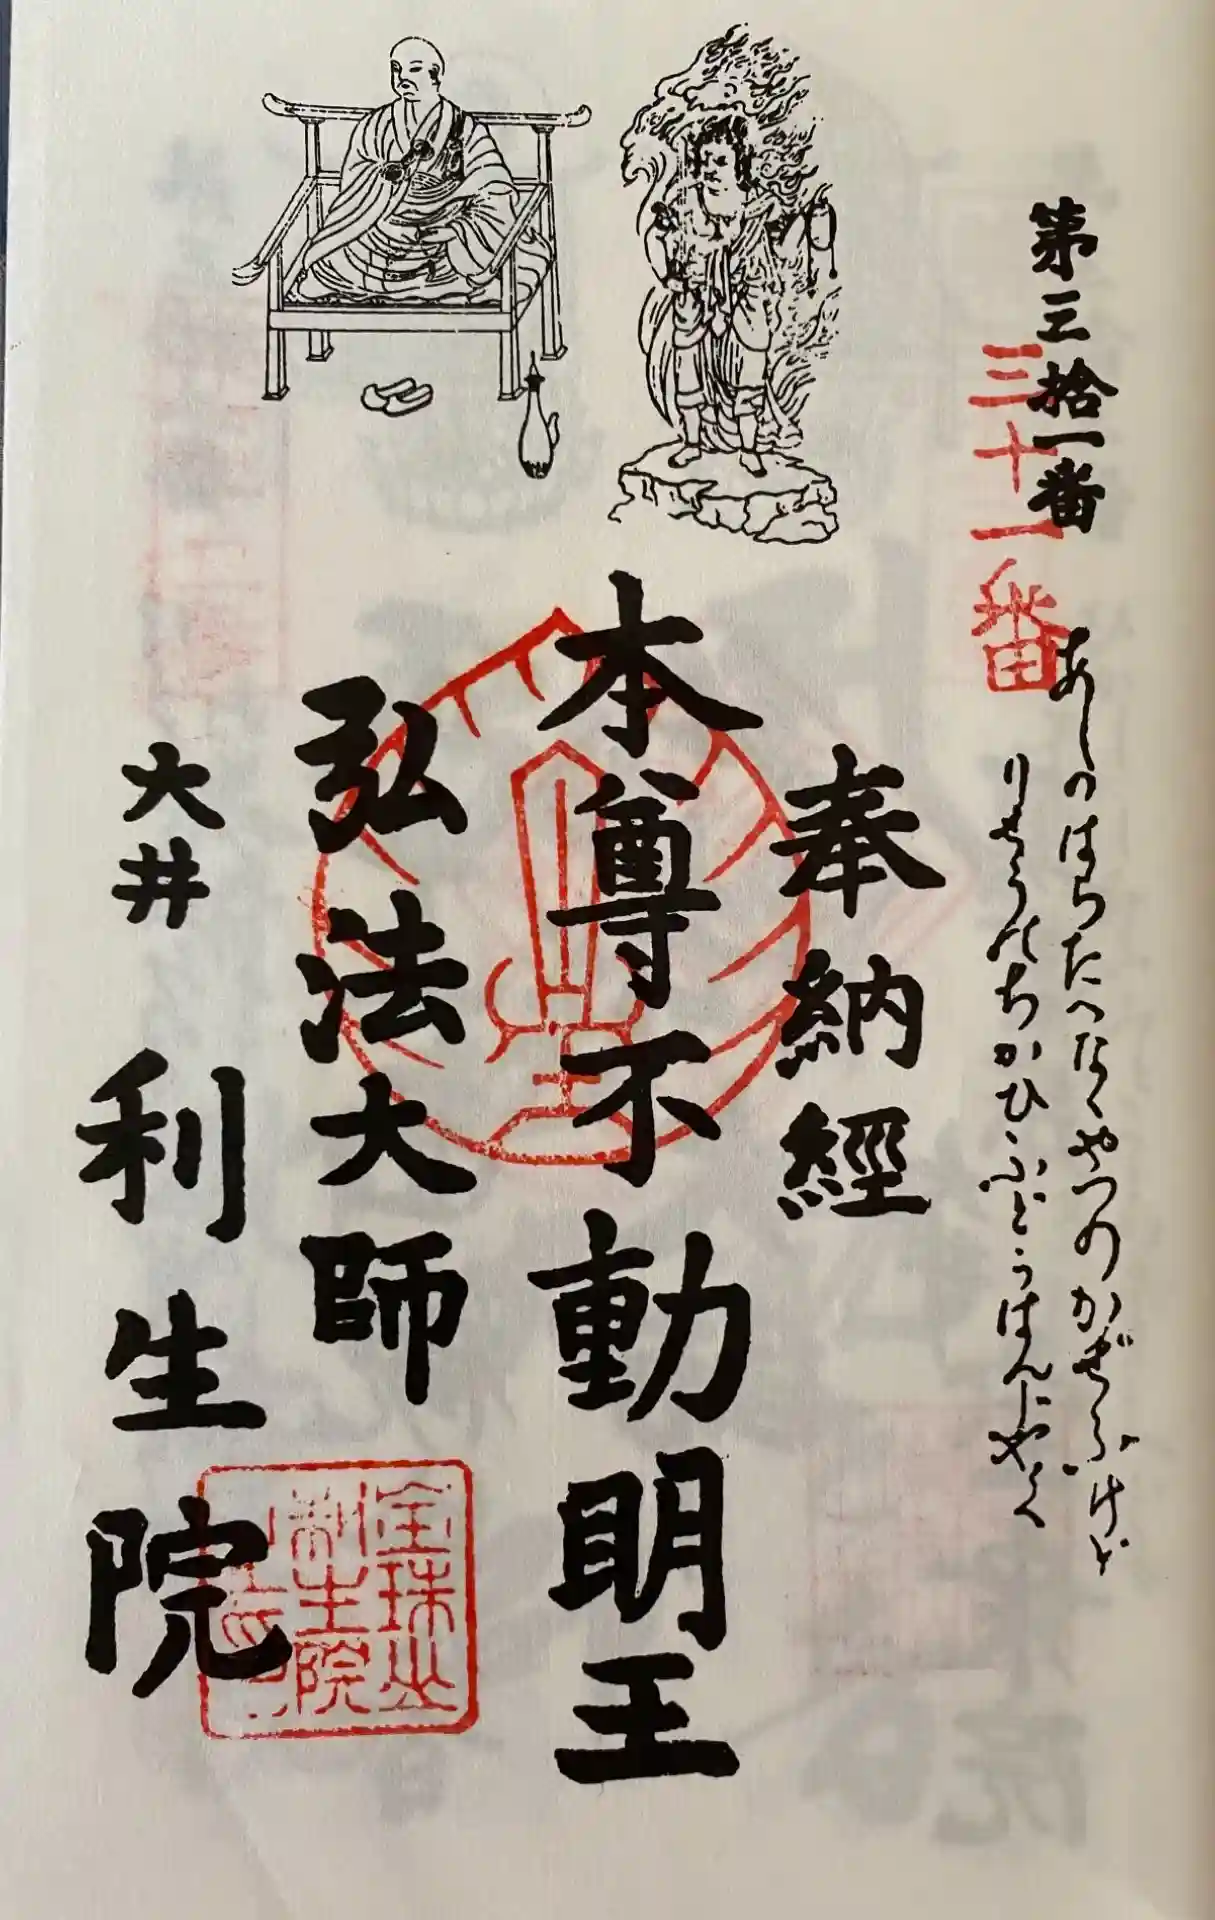 第三拾一番
三十一番
あしのはらたへなくやつのかぜふけど
りせうのちかひふどうはんじやく
奉納經
本尊不動明王
弘法大師
大井 利生院
宝珠山
利生院